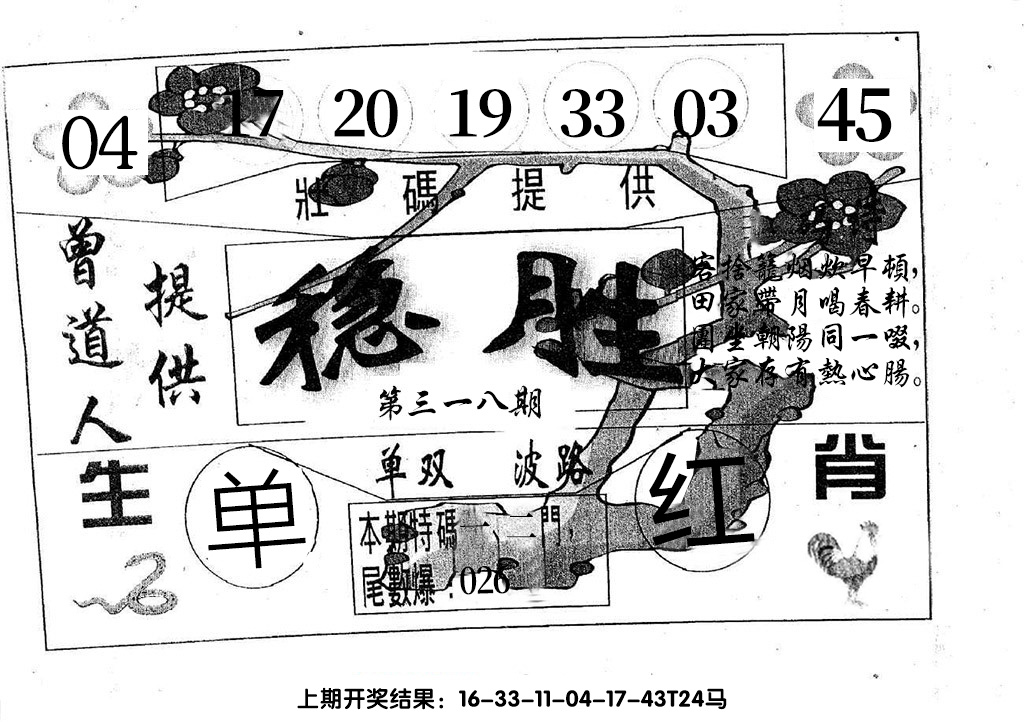 04 17 20 19 33 03 45
壯碼提供
曾道人
提供
稳胜
第三一八期
客捨籠烟炊早頓，
田家帶月喝春耕。
圍坐朝陽同一啜，
大家存有熱心腸。
单双 波路
生肖
单
红
本期特碼一、二門，
尾數爆：026
上期开奖结果：16-33-11-04-17-43T24马